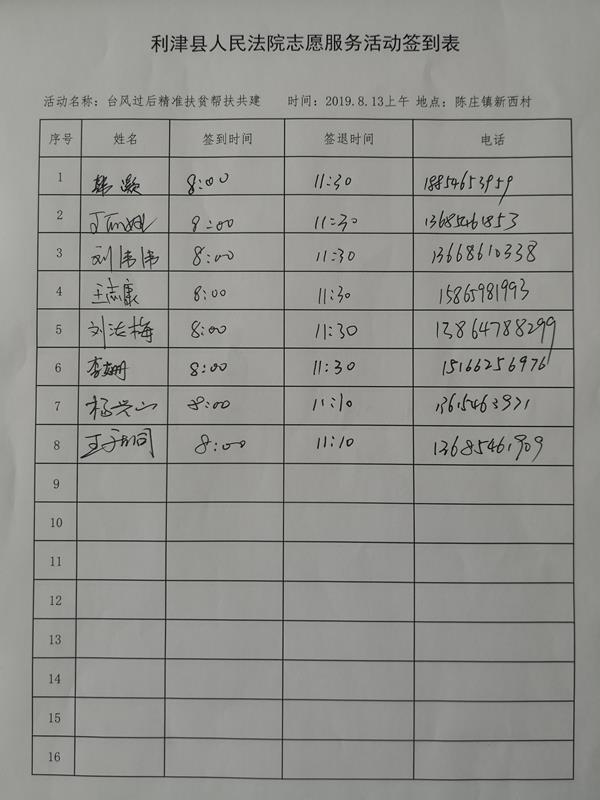 利津县人民法院志愿服务活动签到表
活动名称：台风过后精准扶贫帮扶共建 时间：2019.8.13上午 地点：陈庄镇新西村
序号 姓名 签到时间 签退时间 电话
1 韩灏 8:00 11:30 18854653959
2 8:00 11:30 13685461853
3 刘伟伟 8:00 11:30 13668610338
4 王志康 8:00 11:30 15865981993
5 刘法梅 8:00 11:30 13864788299
6 李姗 8:00 11:30 15166256976
7 杨兴山 8:00 11:10 13615463921
8 8:00 11:10 13685461909
9
10
11
12
13
14
15
16